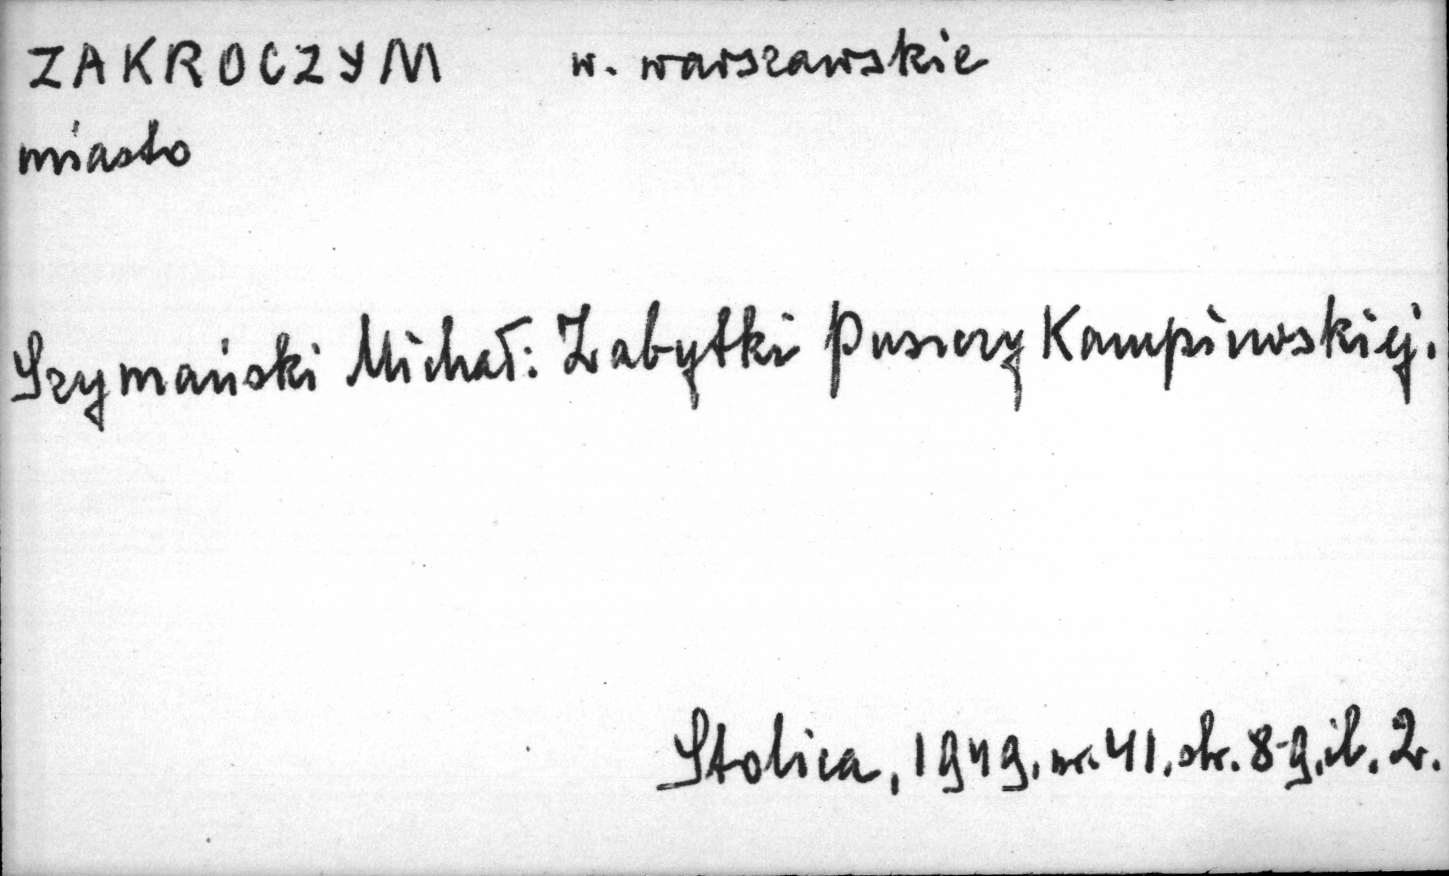 ZAKROCZYM w. warszawskie
miasto
Szymański Michał: Zabytki Puszczy Kampinoskiej.
Stolica, 1949. nr. 41. str. 8-9, il. 2.